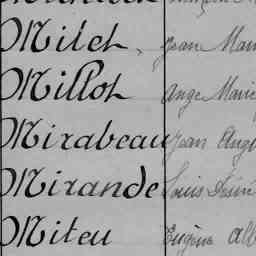 Milet, Jean Mari
Millot Ange Marie
Mirabeau Jean Ange
Mirande Louis Désiré
Miteu Eugène Alb